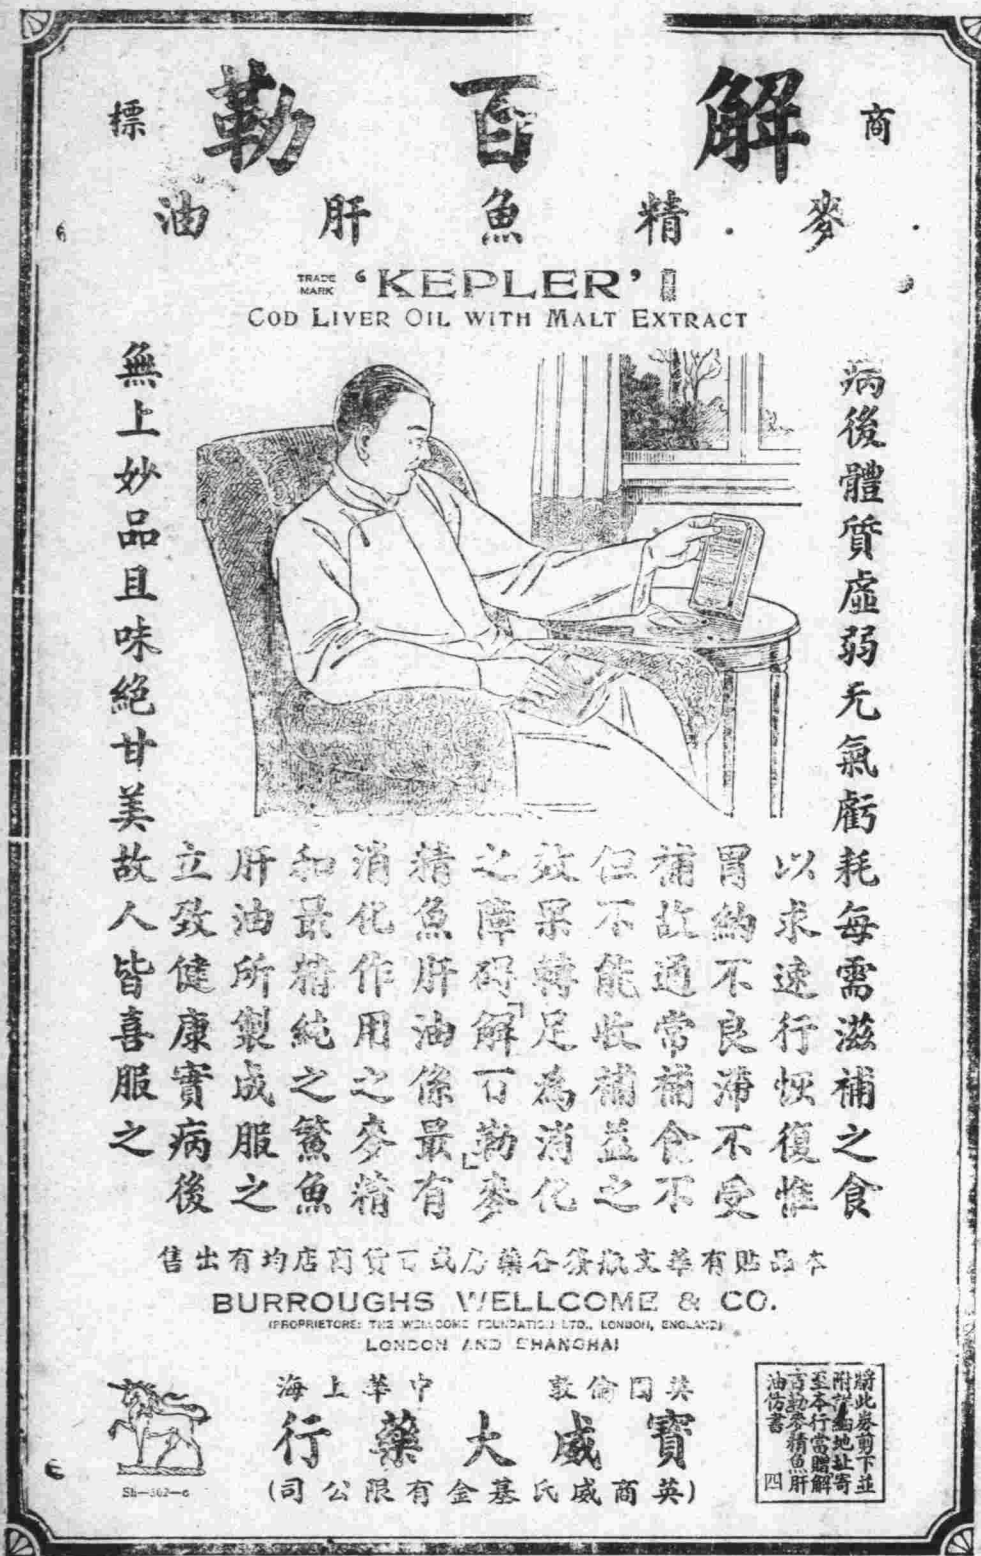 商 解百勒 標
麥精魚肝油
TRADE MARK 'KEPLER'
COD LIVER OIL WITH MALT EXTRACT
病後體質虛弱元氣虧耗每需滋補之食
以求速行恢復惟
胃納不良滯不受
補故通常補食不
但不能收補益之
效果轉足為消化
之障碍「解百勒」麥
精魚肝油係最有
消化作用之麥精
和最精純之鰵魚
肝油所製成服之
立致健康實病後
無上妙品且味絕甘美故人皆喜服之
本品貼有華文瓶簽各藥房或百貨商店均有出售
BURROUGHS WELLCOME & CO.
(PROPRIETORS: THE WELLCOME FOUNDATION LTD., LONDON, ENGLAND)
LONDON AND SHANGHAI
英國倫敦 中華上海
寶威大藥行
(英商威氏基金有限公司)
將此券剪下並
附地址寄
至本行當贈解
百勒麥精魚肝
油仿書 四